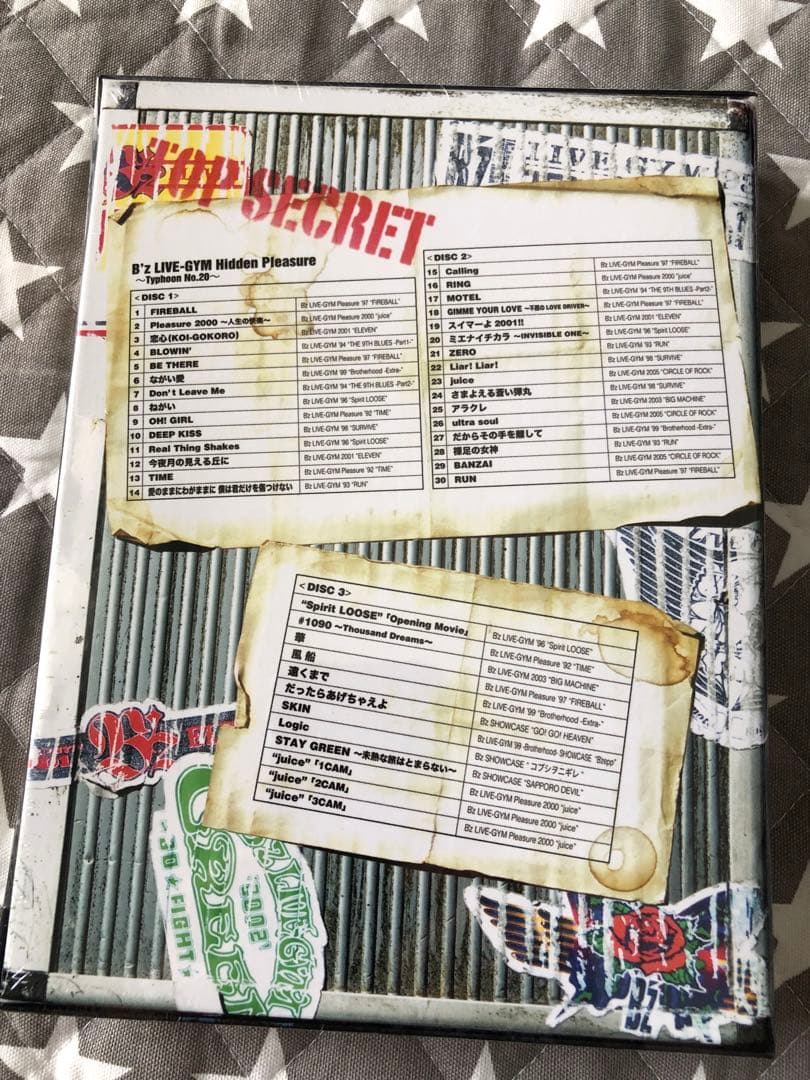 TOP SECRET
LIVE GYM
B'z LIVE-GYM Hidden Pleasure
～Typhoon No.20～
<DISC 1>
1 FIREBALL B'z LIVE-GYM Pleasure '97 "FIREBALL"
2 Pleasure 2000 ～人生の快楽～ B'z LIVE-GYM Pleasure 2000 "juice"
3 恋心(KOI-GOKORO) B'z LIVE-GYM 2001 "ELEVEN"
4 BLOWIN' B'z LIVE-GYM '94 "THE 9TH BLUES -Part1-"
5 BE THERE B'z LIVE-GYM Pleasure '97 "FIREBALL"
6 ながい愛 B'z LIVE-GYM '99 "Brotherhood -Extra-"
7 Don't Leave Me B'z LIVE-GYM '94 "THE 9TH BLUES -Part2-"
8 ねがい B'z LIVE-GYM '96 "Spirit LOOSE"
9 OH! GIRL B'z LIVE-GYM Pleasure '92 "TIME"
10 DEEP KISS B'z LIVE-GYM '98 "SURVIVE"
11 Real Thing Shakes B'z LIVE-GYM '96 "Spirit LOOSE"
12 今夜月の見える丘に B'z LIVE-GYM 2001 "ELEVEN"
13 TIME B'z LIVE-GYM Pleasure '92 "TIME"
14 愛のままにわがままに 僕は君だけを傷つけない B'z LIVE-GYM '93 "RUN"
<DISC 2>
15 Calling B'z LIVE-GYM Pleasure '97 "FIREBALL"
16 RING B'z LIVE-GYM Pleasure 2000 "juice"
17 MOTEL B'z LIVE-GYM '94 "THE 9TH BLUES -Part2-"
18 GIMME YOUR LOVE ～不屈のLOVE DRIVER～ B'z LIVE-GYM Pleasure '97 "FIREBALL"
19 スイマーよ2001!! B'z LIVE-GYM 2001 "ELEVEN"
20 ミエナイチカラ ～INVISIBLE ONE～ B'z LIVE-GYM '96 "Spirit LOOSE"
21 ZERO B'z LIVE-GYM '93 "RUN"
22 Liar! Liar! B'z LIVE-GYM '98 "SURVIVE"
23 juice B'z LIVE-GYM 2005 "CIRCLE OF ROCK"
24 さまよえる蒼い弾丸 B'z LIVE-GYM '98 "SURVIVE"
25 アラクレ B'z LIVE-GYM 2003 "BIG MACHINE"
26 ultra soul B'z LIVE-GYM 2005 "CIRCLE OF ROCK"
27 だからその手を離して B'z LIVE-GYM '99 "Brotherhood -Extra-"
28 裸足の女神 B'z LIVE-GYM '93 "RUN"
29 BANZAI B'z LIVE-GYM 2005 "CIRCLE OF ROCK"
30 RUN B'z LIVE-GYM Pleasure '97 "FIREBALL"
<DISC 3>
"Spirit LOOSE"「Opening Movie」 B'z LIVE-GYM '96 "Spirit LOOSE"
#1090 ～Thousand Dreams～ B'z LIVE-GYM Pleasure '92 "TIME"
華 B'z LIVE-GYM 2003 "BIG MACHINE"
風船 B'z LIVE-GYM Pleasure '97 "FIREBALL"
遠くまで B'z LIVE-GYM '99 "Brotherhood -Extra-"
だったらあげちゃえよ B'z SHOWCASE "GO! GO! HEAVEN"
SKIN B'z LIVE-GYM '99 -Brotherhood- SHOWCASE "Bzepp"
Logic B'z SHOWCASE "コブシヲニギレ"
STAY GREEN ～未熟な旅はとまらない～ B'z SHOWCASE "SAPPORO DEVIL"
"juice"「1CAM」 B'z LIVE-GYM Pleasure 2000 "juice"
"juice"「2CAM」 B'z LIVE-GYM Pleasure 2000 "juice"
"juice"「3CAM」 B'z LIVE-GYM Pleasure 2000 "juice"
B'z LIVE-GYM
2002
GREEN
-GO★FIGHT
B'z